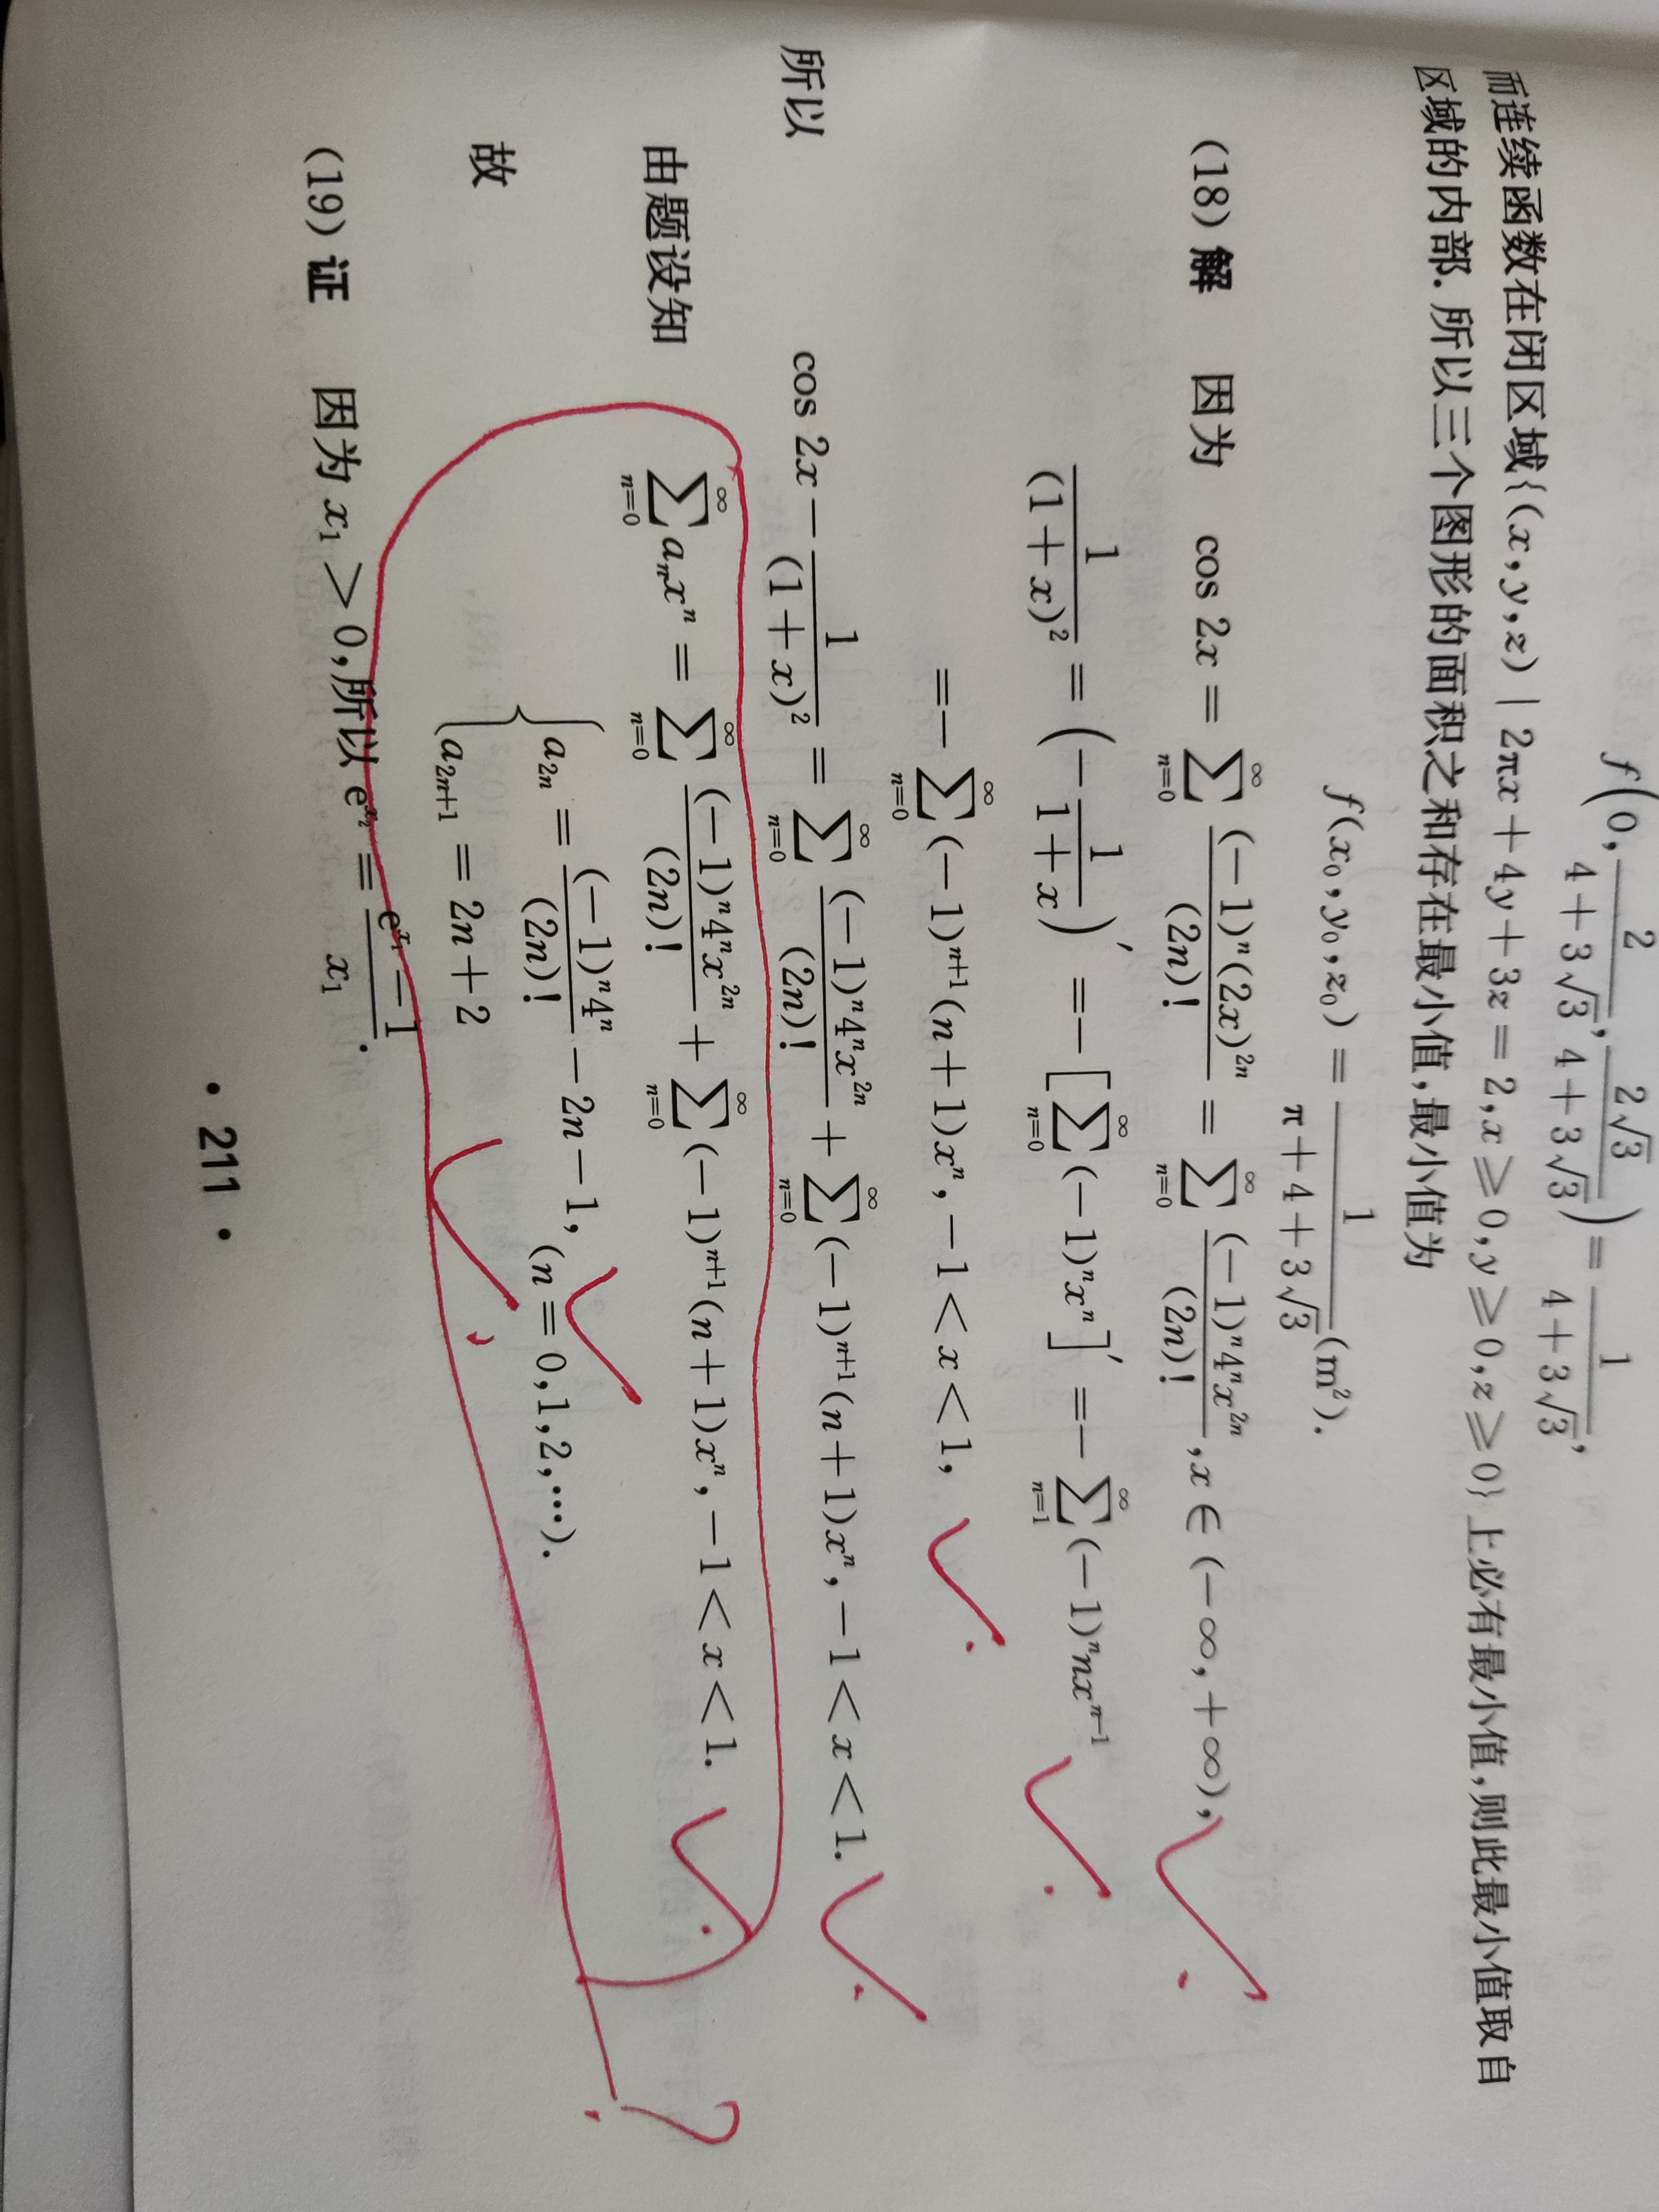 f(0, 2/(4+3√3), 2√3/(4+3√3)) = 1/(4+3√3),
而连续函数在闭区域{(x,y,z) | 2πx+4y+3z=2,x≥0,y≥0,z≥0}上必有最小值,则此最小值取自
区域的内部. 所以三个图形的面积之和存在最小值,最小值为
f(x₀,y₀,z₀) = 1/(π+4+3√3) (m²).
(18) 解 因为 cos 2x = ∑_{n=0}^{∞} (-1)ⁿ(2x)²ⁿ/(2n)! = ∑_{n=0}^{∞} (-1)ⁿ4ⁿx²ⁿ/(2n)!, x∈(-∞,+∞),
1/(1+x)² = (-1/(1+x))′ = -[∑_{n=0}^{∞} (-1)ⁿxⁿ]′ = -∑_{n=1}^{∞} (-1)ⁿnxⁿ⁻¹
= -∑_{n=0}^{∞} (-1)ⁿ⁺¹(n+1)xⁿ, -1<x<1,
所以 cos 2x - 1/(1+x)² = ∑_{n=0}^{∞} (-1)ⁿ4ⁿx²ⁿ/(2n)! + ∑_{n=0}^{∞} (-1)ⁿ⁺¹(n+1)xⁿ, -1<x<1.
由题设知 ∑_{n=0}^{∞} aₙxⁿ = ∑_{n=0}^{∞} (-1)ⁿ4ⁿx²ⁿ/(2n)! + ∑_{n=0}^{∞} (-1)ⁿ⁺¹(n+1)xⁿ, -1<x<1.
故 { a₂ₙ = (-1)ⁿ4ⁿ/(2n)! - 2n - 1, (n=0,1,2,…).
a₂ₙ₊₁ = 2n+2
?
(19) 证 因为 x₁>0,所以 e^{x₂} = (e^{x₁}-1)/x₁.
· 211 ·